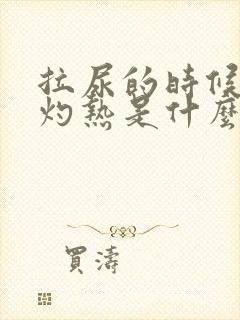 拉尿的時候
灼熱是什麼
買濤